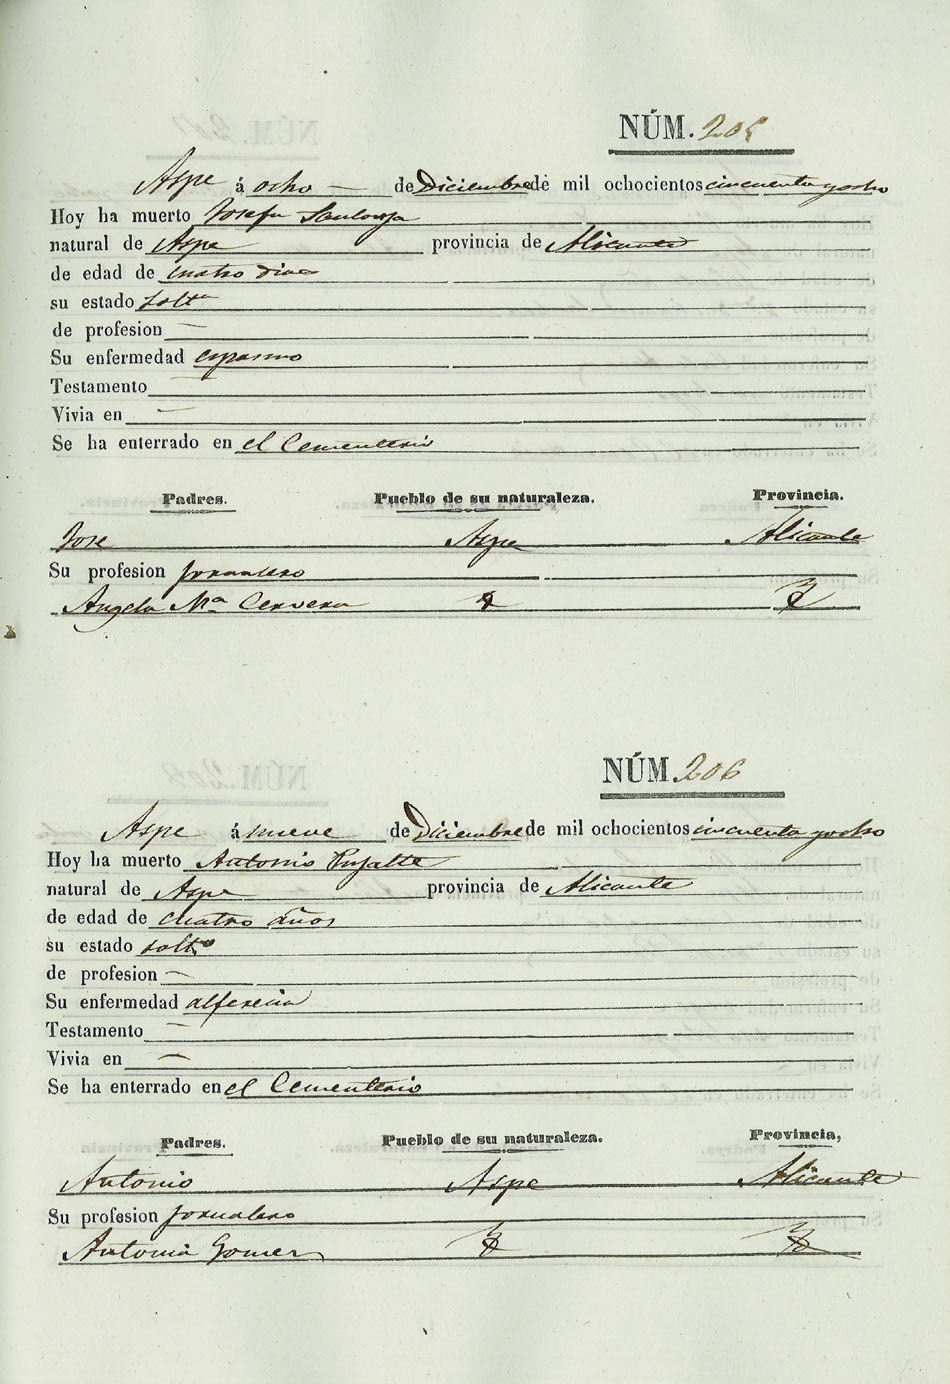 NÚM. 205
Aspe á ocho — de Diciembre de mil ochocientos cincuenta y ocho
Hoy ha muerto Josefa
natural de Aspe provincia de Alicante
de edad de cuatro dias
su estado solt.a
de profesion —
Su enfermedad espasmo
Testamento —
Vivia en —
Se ha enterrado en el Cementerio
Padres. Pueblo de su naturaleza. Provincia.
Jose Aspe Alicante
Su profesion jornalero
Angela Mª Cervera
NÚM. 206
Aspe á nueve de Diciembre de mil ochocientos cincuenta y ocho
Hoy ha muerto Antonio Pujalte
natural de Aspe provincia de Alicante
de edad de cuatro años
su estado solt.o
de profesion —
Su enfermedad alferecia
Testamento —
Vivia en —
Se ha enterrado en el Cementerio
Padres. Pueblo de su naturaleza. Provincia,
Antonio Aspe Alicante
Su profesion jornalero
Antonia Gomez